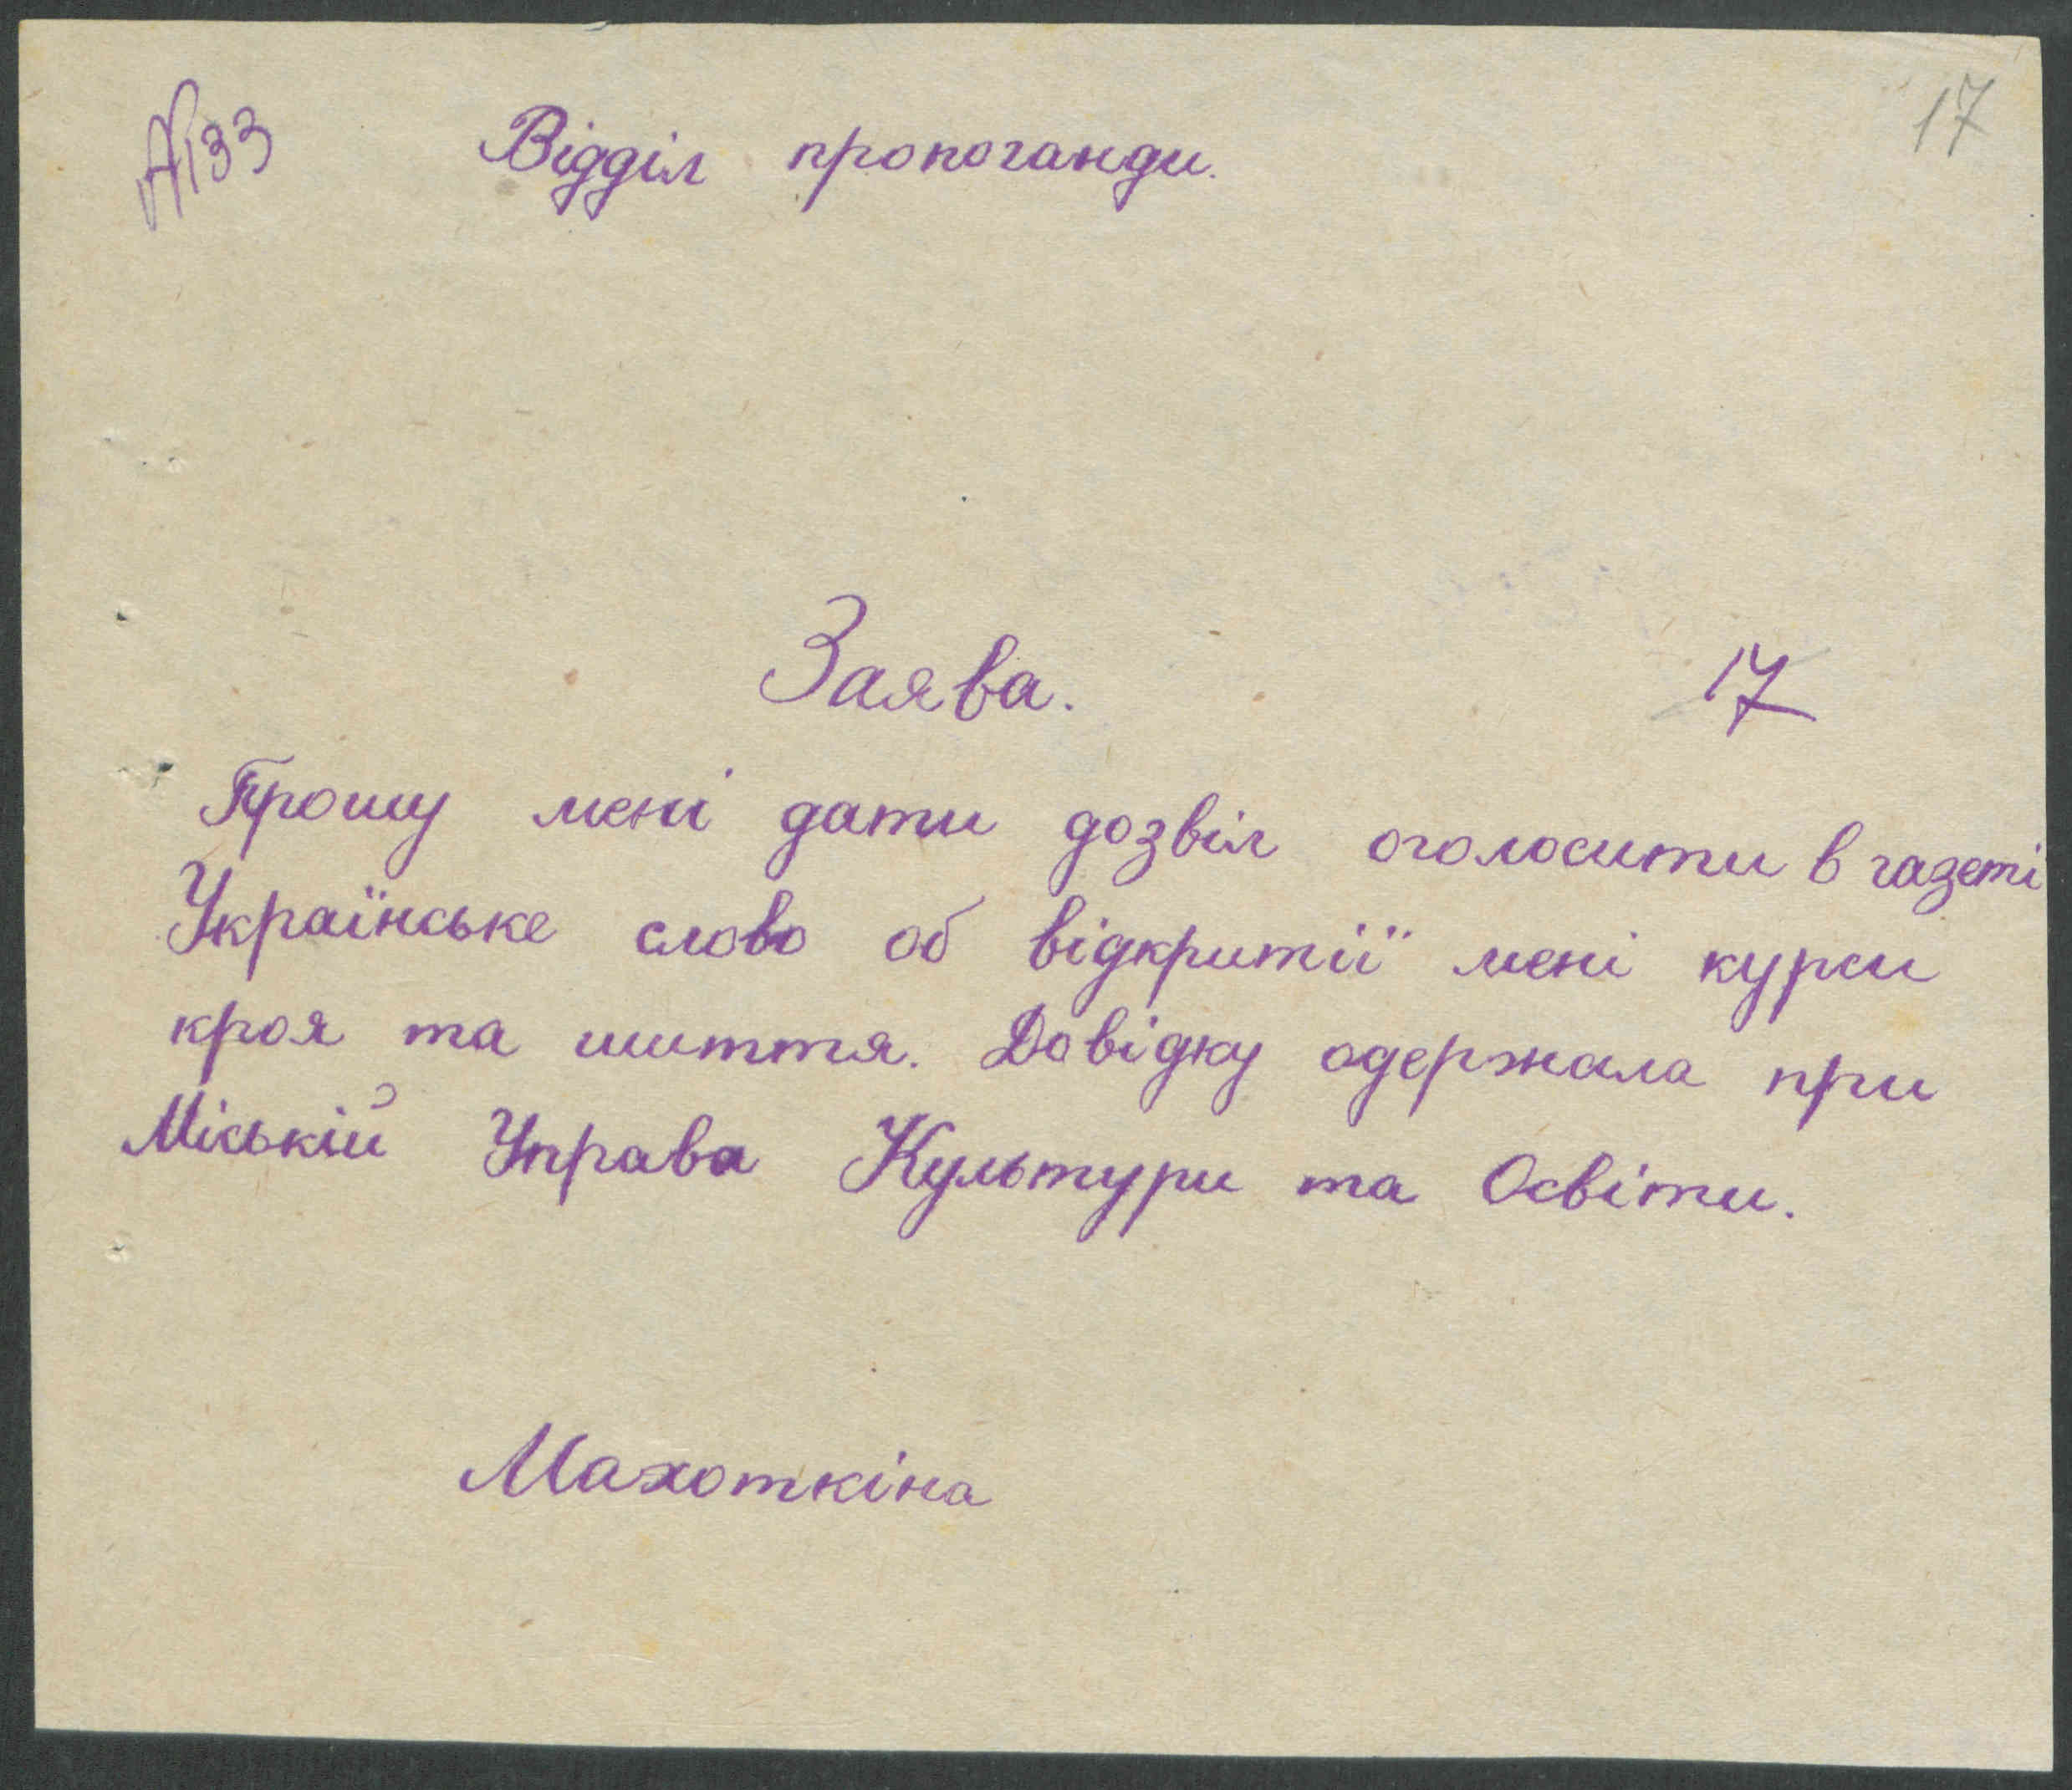 №133
Відділ пропоганди.
17
Заява.
17
Прошу мені дати дозвіл оголосити в газеті
Українське слово об відкритії мені курси
кроя та шиття. Довідку одержала при
Міській Управа Культури та Освіти.
Махоткіна